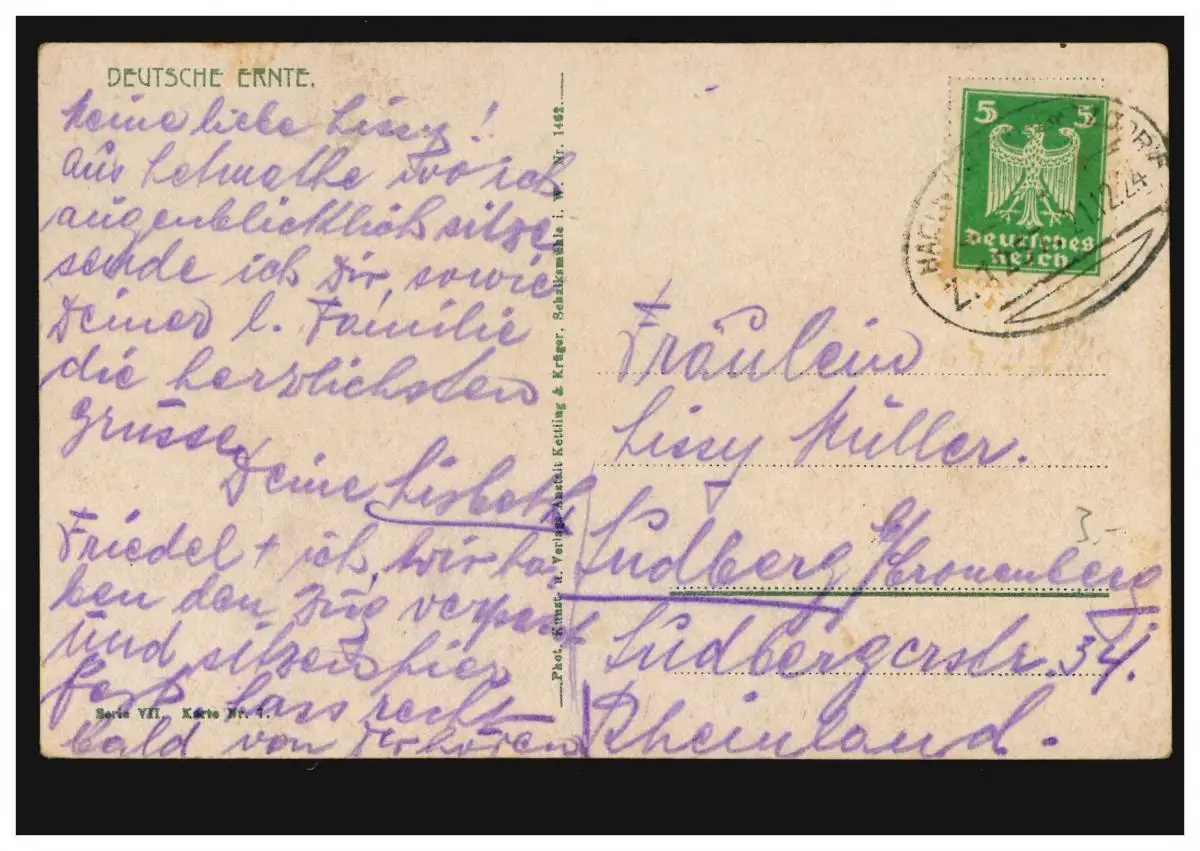 DEUTSCHE ERNTE.
Meine liebe Lissy!
Aus Letmathe wo ich
augenblicklich sitze
sende ich Dir, sowie
Deiner l. Familie
die herzlichsten
Grüsse
Deine Lisbeth
Friedel + ich, wir ha-
ben den Zug verpasst
und sitzen hier
fest. Lass recht
bald von Dir hören
Serie VII. Karte Nr. 1.
Phot. Kunst- u. Verlags-Anstalt Kettling & Krüger, Schalksmühle i. W. Nr. 1462.
5 5
Deutsches
Reich
21.12.24
Fräulein
Lissy Müller.
Sudberg b/Kronenberg
Sudbergerstr. 34.
Rheinland.
3.-